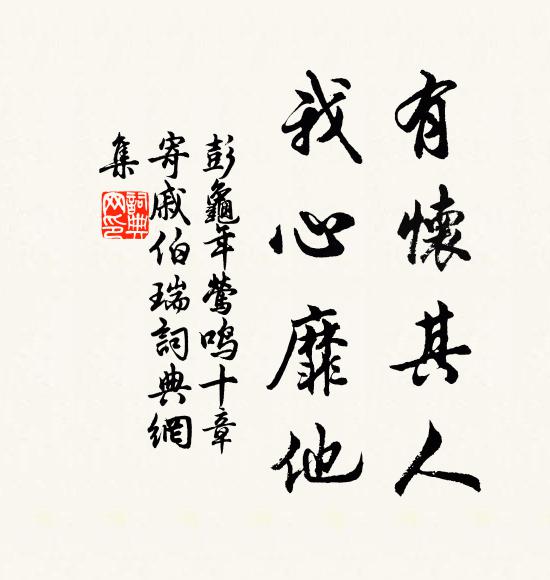 有懷其人
我心靡他
彭龜年鶯鳴十章
寄戚伯瑞詞典網
集
詞典网印